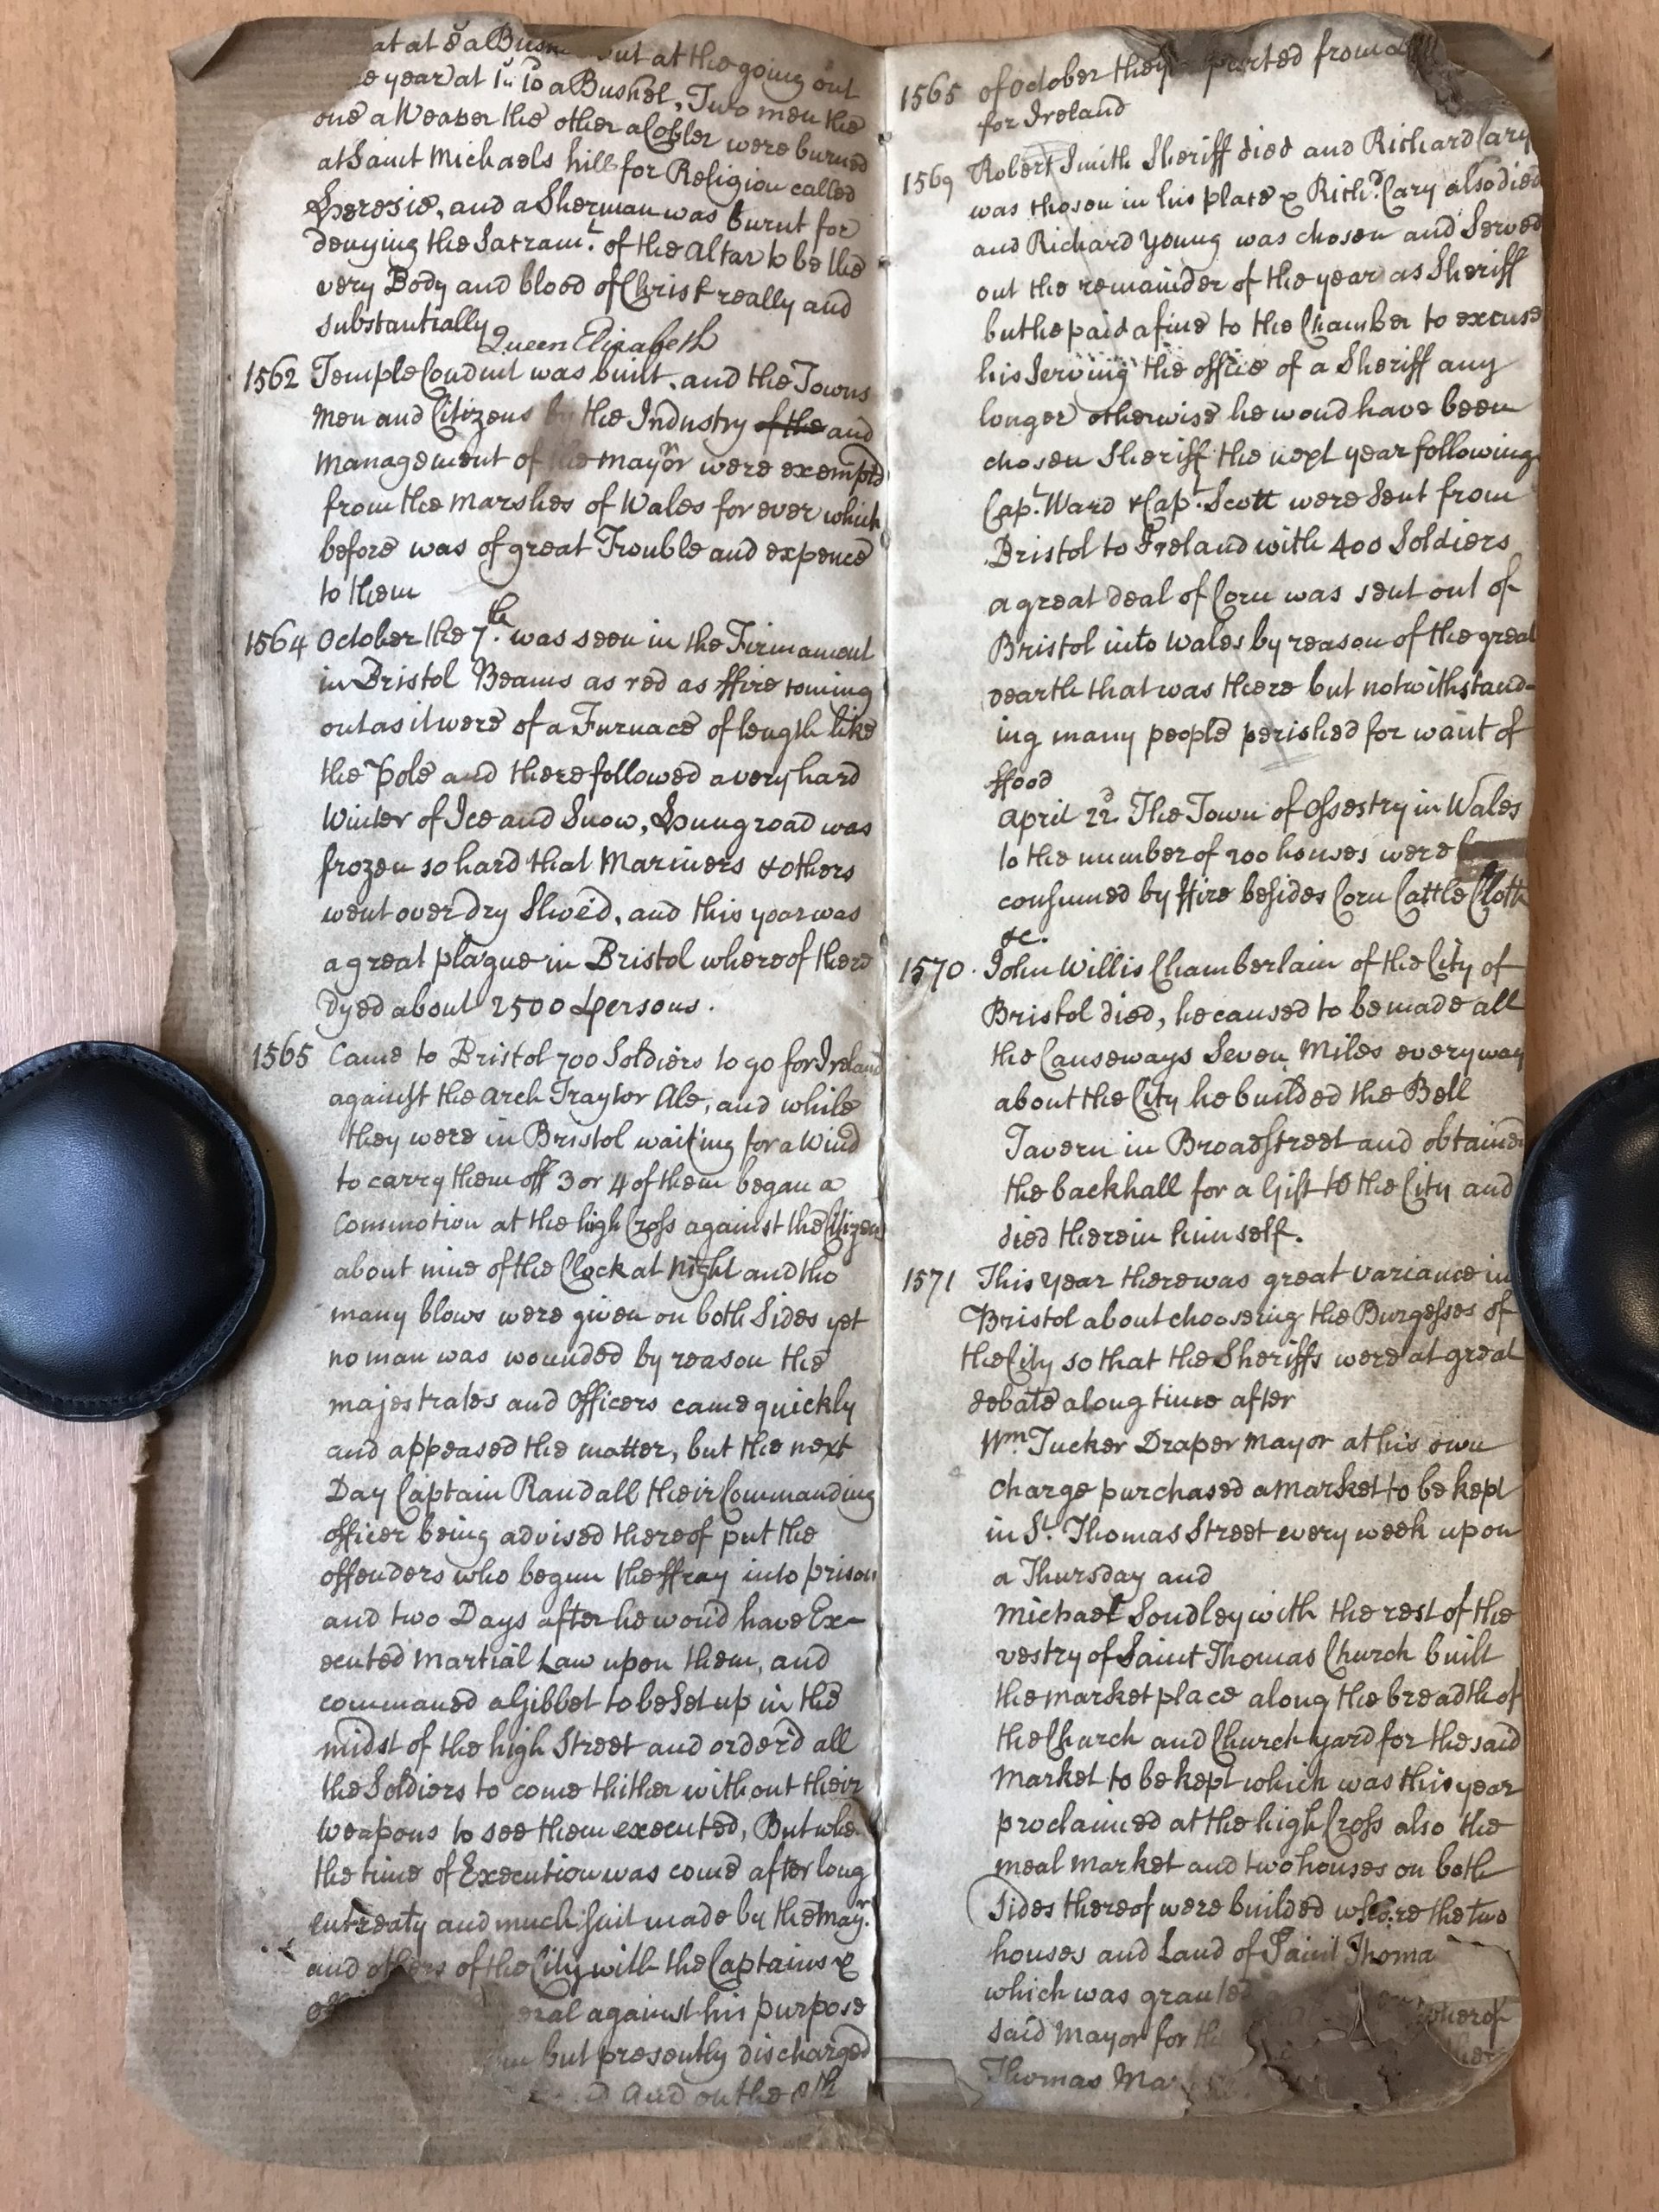 at at 8 a Bush but at the going out
e year at 1: 10 a Bushel, Two men the
one a Weaver the other a Cobler were burned
at Saint Michaels hill for Religion called
Heresie, and a Sherman was burnt for
denying the Sacramt. of the Altar to be the
very Body and blood of Christ really and
substantially
Queen Elizabeth
1562 Temple Conduit was built, and the Towns
Men and Citizens by the Industry of the and
Management of the mayor were exemptd
from the Marshes of Wales for ever which
before was of great Trouble and expence
to them
1564 October the 7th. was seen in the Firmament
in Bristol Beams as red as ffire coming
out as it were of a Furnace of length like
the Pole and there followed a very hard
Winter of Ice and Snow, Hungroad was
frozen so hard that Mariners & others
went over dry Shoed, and this year was
a great plague in Bristol whereof there
Dyed about 2500 persons.
1565 Came to Bristol 700 Soldiers to go for Ireland
against the Arch Traytor Ale, and while
they were in Bristol waiting for a Wind
to carry them off 3 or 4 of them began a
Commotion at the high Cross against the Citizens
about nine of the Clock at Night and tho
many blows were given on both Sides yet
no man was wounded by reason the
majestrates and Officers came quickly
and appeased the matter, but the next
Day Captain Randall their Commanding
officer being advised thereof put the
offenders who begun the ffray into prison
and two Days after he woud have Ex-
ecuted Martial Law upon them, and
commaned a Gibbet to be Set up in the
midst of the high Street and order'd all
the Soldiers to come thither without their
weapons to see them executed, But whe
the time of Execution was come after long
entreaty and much suit made by the Mayr.
and others of the City with the Captains &
eral against his purpose
but presently discharged
And on the 8th
1565 of October they parted from
for Ireland
1569 Robert Smith Sheriff died and Richard Cary
was chosen in his place & Richd. Cary also died
and Richard Young was chosen and Served
out the remainder of the year as Sheriff
but he paid a fine to the Chamber to excuse
his Serving the office of a Sheriff any
longer otherwise he woud have been
chosen Sheriff the next year following
Capt. Ward & Capt. Scott were Sent from
Bristol to Ireland with 400 Soldiers
a great deal of Corn was sent out of
Bristol into Wales by reason of the great
dearth that was there but notwithstand-
ing many people perished for want of
ffood
April 22d The Town of Ossestry in Wales
to the number of 200 houses were
consumed by ffire besides Corn Cattle Cloth
&c.
1570. John Willis Chamberlain of the City of
Bristol died, he caused to be made all
the Causeways Seven Miles every way
about the City he builded the Bell
Tavern in Broadstreet and obtained
the backhall for a Gift to the City and
died therein himself.
1571 This year there was great variance in
Bristol about chooseing the Burgesses of
the City so that the Sheriffs were at great
debate a long time after
Wm Tucker Draper Mayor at his own
Charge purchased a market to be kept
in St. Thomas Street every week upon
a Thursday and
Michael Soudley with the rest of the
vestry of Saint Thomas Church built
the market place along the breadth of
the Church and Church yard for the said
Market to be kept which was this year
proclaimed at the high Cross also the
meal Market and two houses on both
Sides thereof were builded where the two
houses and Land of Saint Thoma
which was granted
said Mayor for th wherof
Thomas Ma